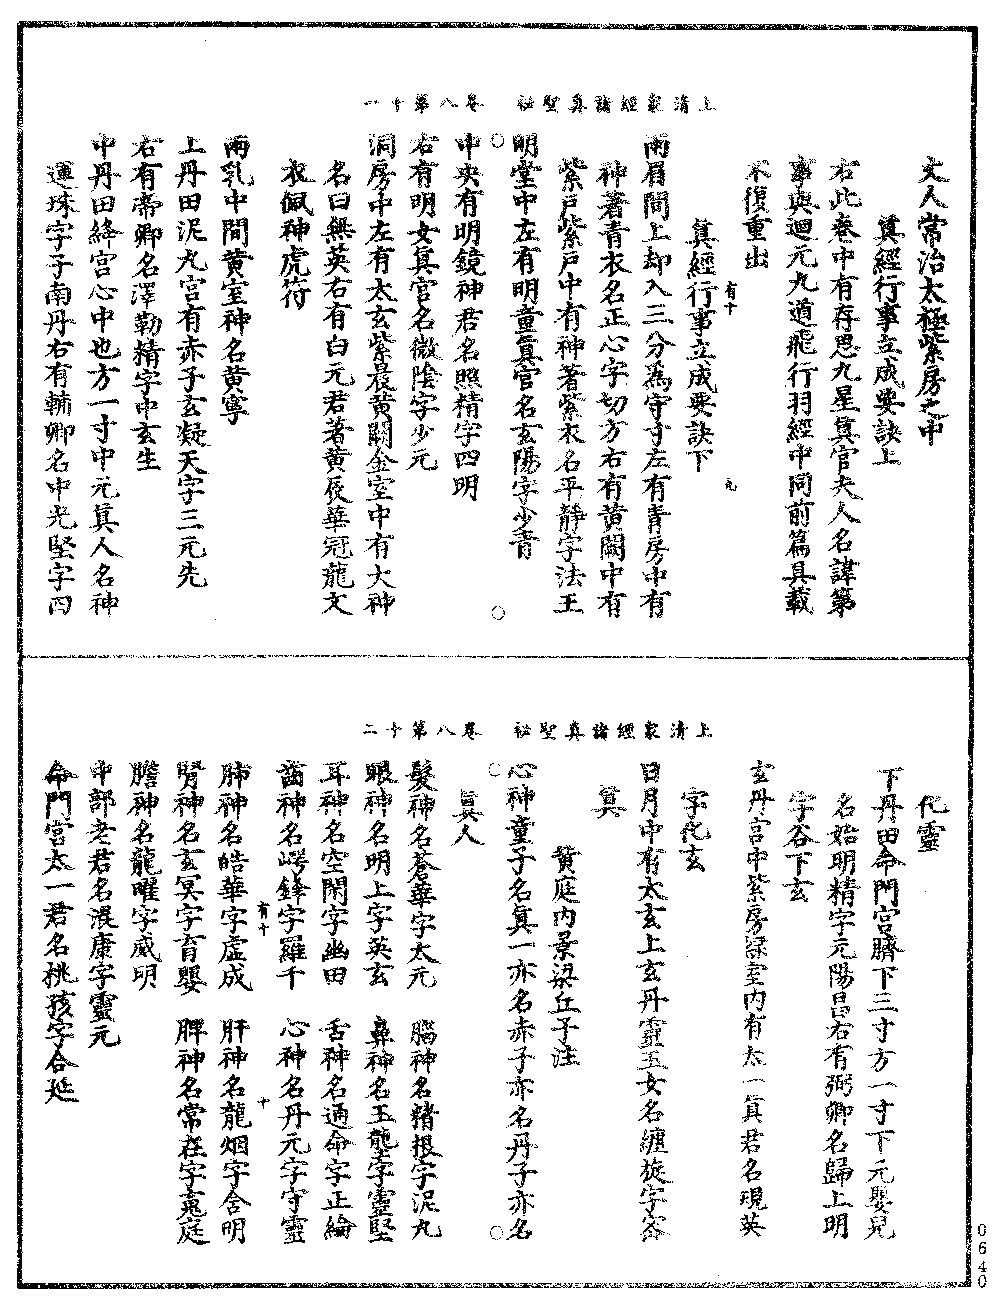 上清衆經諸真聖祕　卷八第十一
丈人常治太極紫房之中
真經行事立成要訣上
右此卷中有存思九星真官夫人名諱第
事與迴元九道飛行羽經中同前篇具載
不復重出
真經行事立成要訣下
有十
九
兩眉間上却入三分為守寸左有青房中有
神著青衣名正心字切方右有黃闕中有
紫戶紫戶中有神著紫衣名平靜字法王
明堂中左有明童真官名玄陽字少青
中央有明鏡神君名照精字四明
右有明女真官名微陰字少元
洞房中左有太玄紫晨黃闕金室中有大神
名曰無英右有白元君著黃辰華冠龍文
衣佩神虎符
兩乳中間黃室神名黃寧
上丹田泥丸宮有赤子玄凝天字三元先
右有帝卿名澤勒精字中玄生
中丹田絳宮心中也方一寸中元真人名神
運珠字子南丹右有輔卿名中光堅字四
上清衆經諸真聖祕　卷八第十二
化靈
下丹田命門宮臍下三寸方一寸下元嬰兒
名始明精字元陽昌右有弼卿名歸上明
字谷下玄
玄丹宮中紫房綠室內有太一真君名現英
字化玄
日月中有太玄上玄丹靈玉女名纏旋字密
真
黃庭內景梁丘子注
心神童子名真一亦名赤子亦名丹子亦名
真人
髮神名蒼華字太元　腦神名精根字泥丸
眼神名明上字英玄　鼻神名玉壟字靈堅
耳神名空閑字幽田　舌神名通命字正綸
齒神名崿鋒字羅千　心神名丹元字守靈
有十
十
肺神名皓華字虛成　肝神名龍烟字含明
腎神名玄冥字育嬰　脾神名常在字䰟庭
膽神名龍曜字威明
中部老君名混康字靈元
命門宮太一君名桃孩字合延
0640